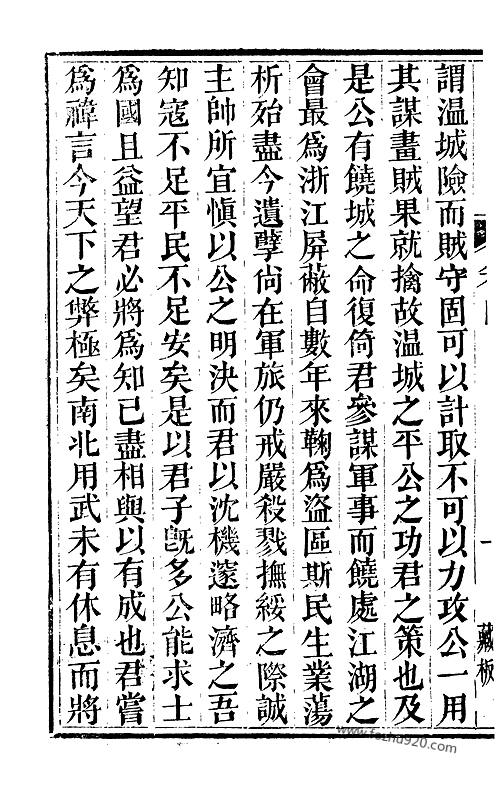 謂温城險而賊守固可以計取不可以力攻公一用
其謀畫賊果就擒故温城之平公之功君之策也及
是公有饒城之命復倚君參謀軍事而饒處江湖之
會最爲浙江屏蔽自數年來鞠爲盜區斯民生業蕩
析始盡今遺孽尙在軍旅仍戒嚴殺戮撫綏之際誠
主帥所宜愼以公之明決而君以沈機邃略濟之吾
知寇不足平民不足安矣是以君子旣多公能求士
爲國且益望君必將爲知已盡相與以有成也君嘗
爲禕言今天下之弊極矣南北用武未有休息而將
藏板
www.fozhu920.com